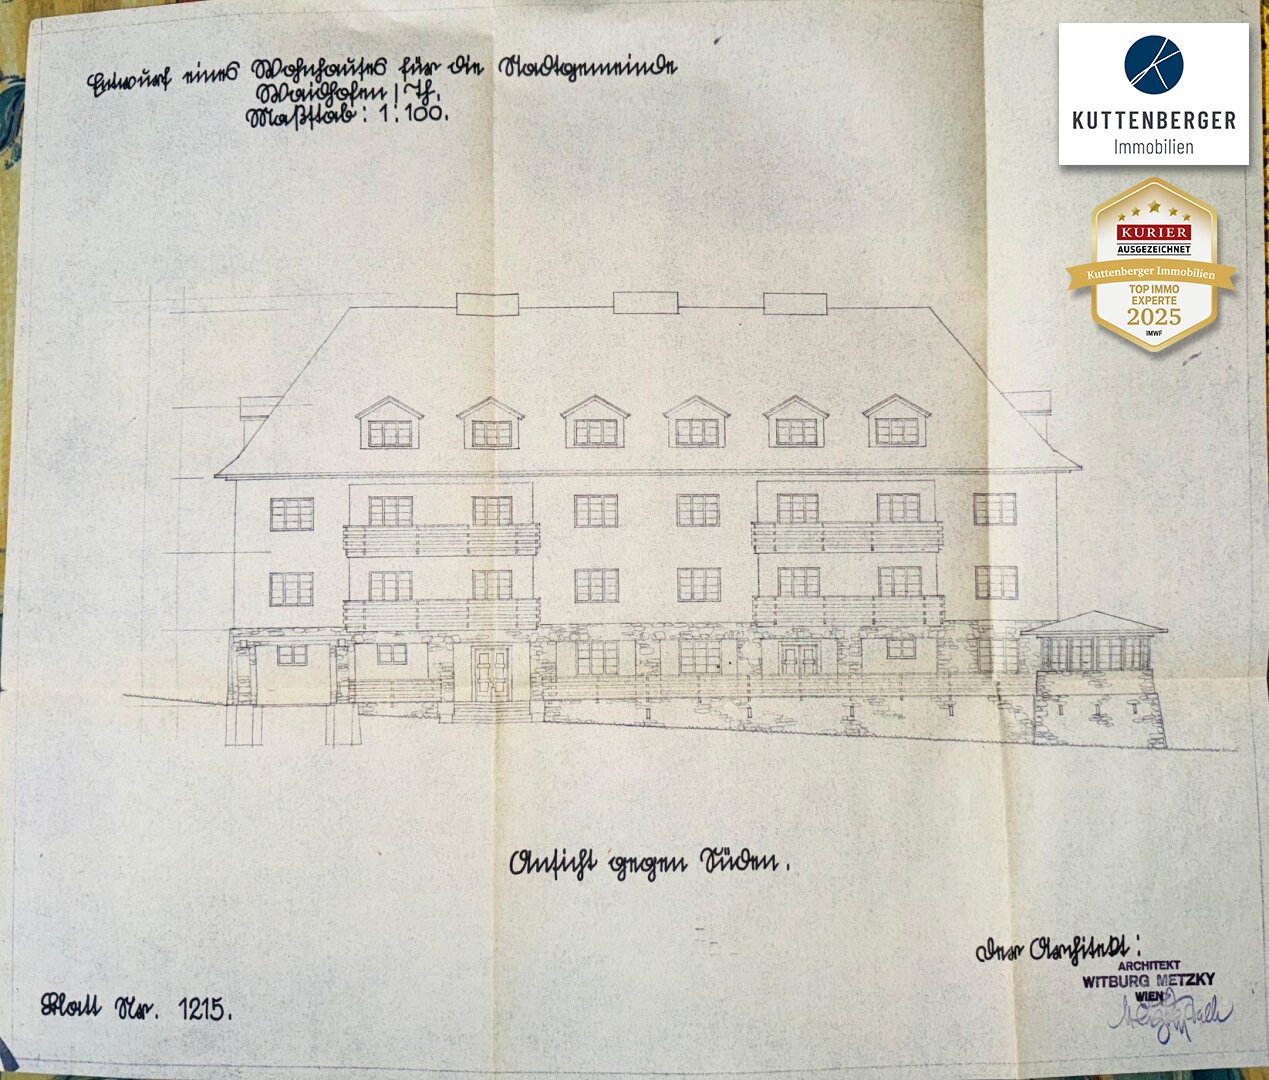 Entwurf eines Wohnhauses für die Stadtgemeinde
Waidhofen / Th.
Maßstab: 1:100.
KUTTENBERGER
Immobilien
KURIER
AUSGEZEICHNET
Kuttenberger Immobilien
TOP IMMO
EXPERTE
2025
IMWF
Ansicht gegen Süden.
Der Architekt:
ARCHITEKT
WITBURG METZKY
WIEN
Blatt Nr. 1215.